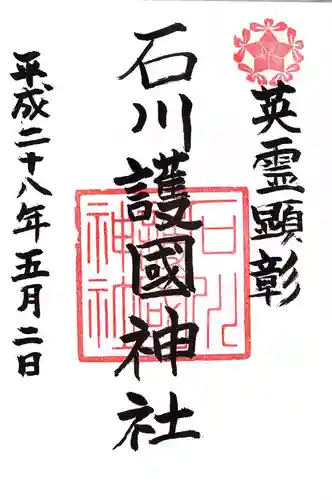 英霊顕彰
石川護國神社
平成二十八年五月二日
石川護國神社